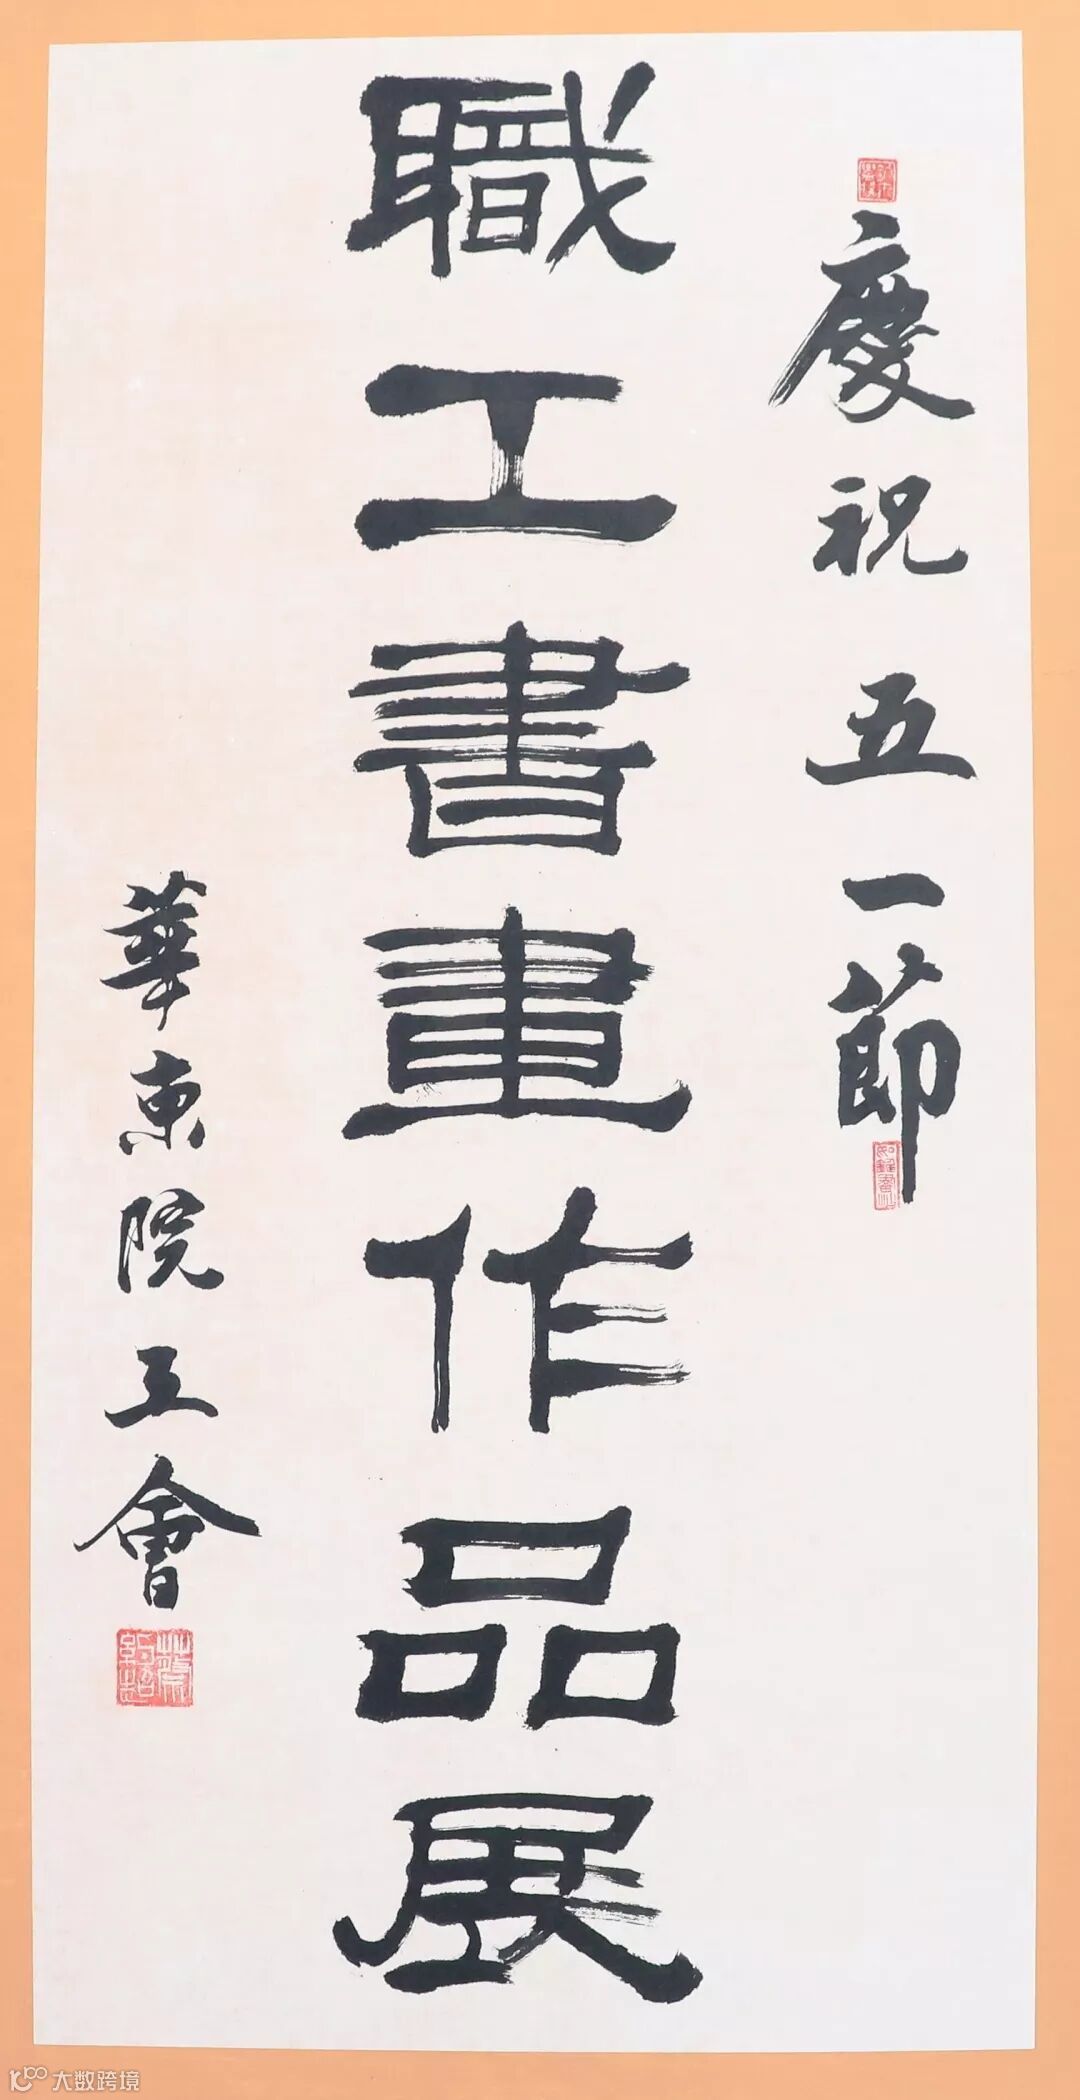 慶祝五一節
職工書畫作品展
華東院工會
大数跨境